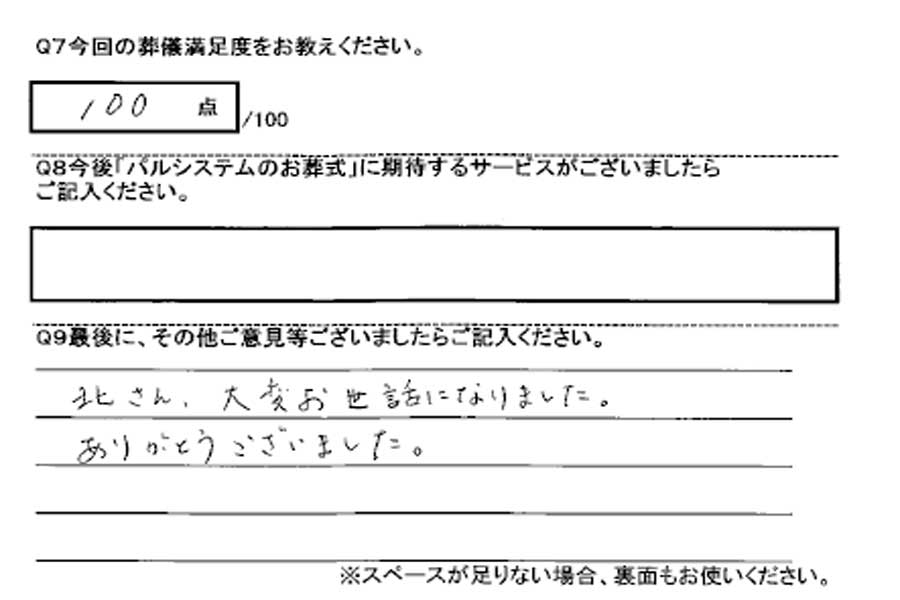 Q7今回の葬儀満足度をお教えください。
100 点 /100
Q8今後「パルシステムのお葬式」に期待するサービスがございましたら
ご記入ください。
Q9最後に、その他ご意見等ございましたらご記入ください。
北さん、大変お世話になりました。
ありがとうございました。
※スペースが足りない場合、裏面もお使いください。